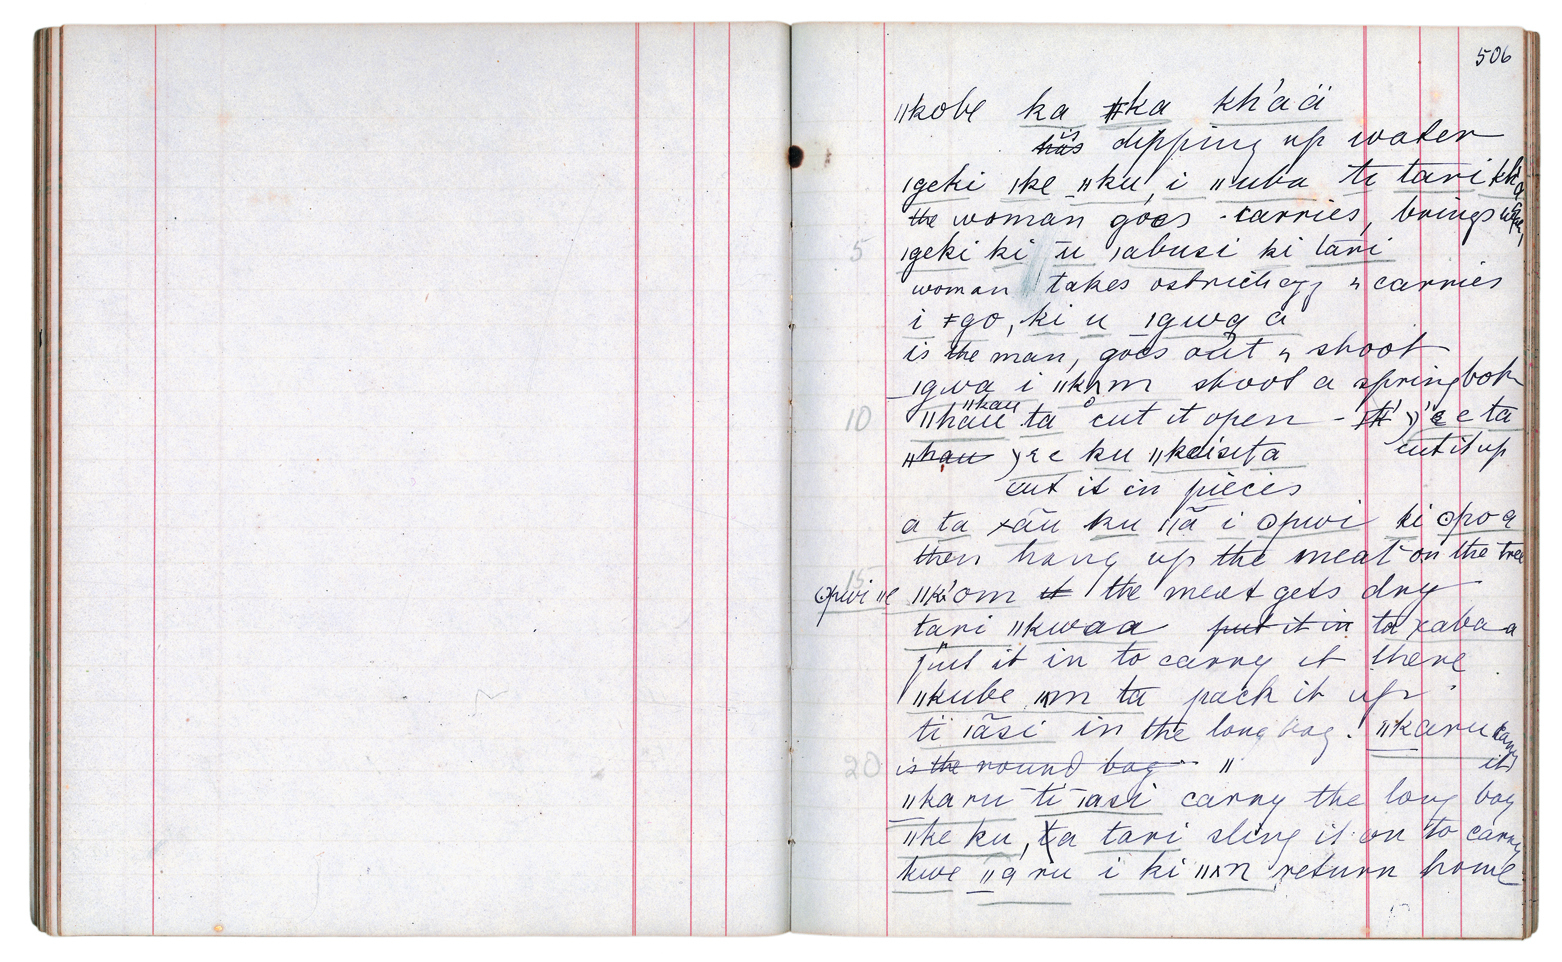 506
ǁkobe ka ǂka kh'aä
has is dipping up water
ǀgeki ǀke ǁku, i ǁuba ti tari kh'a
the woman goes - carries, brings
5 ǀgeki ki ū ǀabusi ki tari
woman takes ostrichegg & carries
i ǂgo, ki u ǀgwa a
is the man, goes out & shoot
ǀgwa i ǁkʌm shoot a springbok
10 ǁhau ǁkau ta cut it open - e ta
cut it up
ǁhau ku ǁkaisita
cut it in pieces
a ta xãu ku ǀǀã i ʘpwi ki ʘpoa
then hang up the meat on the tree
15 ʘpwi ǁe ǁk'om it the meat gets dry
tari ǁkwaa put it in ta xabaa
put it in to carry it there
ǁkube ǁʌm ta pack it up.
ti ǀãsi in the long bag. ǁkaru carry it
20 is the round bag "
ǁkaru ti ǀasi carry the long bag
ǁke ku, ta tari sling it on to carry
kwe ǁaru i ki ǁʌn return home